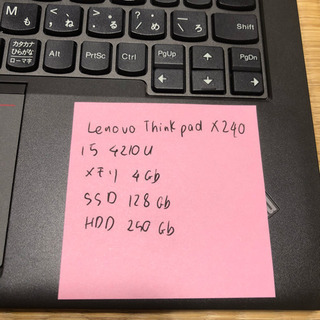 M も
、 ね
。 る
・ め
ろ
Shift
カタカナ
ひらがな
ローマ字
Alt
PrtSc
Ctrl
PgUp
PgDn
Lenovo Thinkpad X240
i5 4210U
メモリ 4Gb
SSD 128Gb
HDD 250Gb